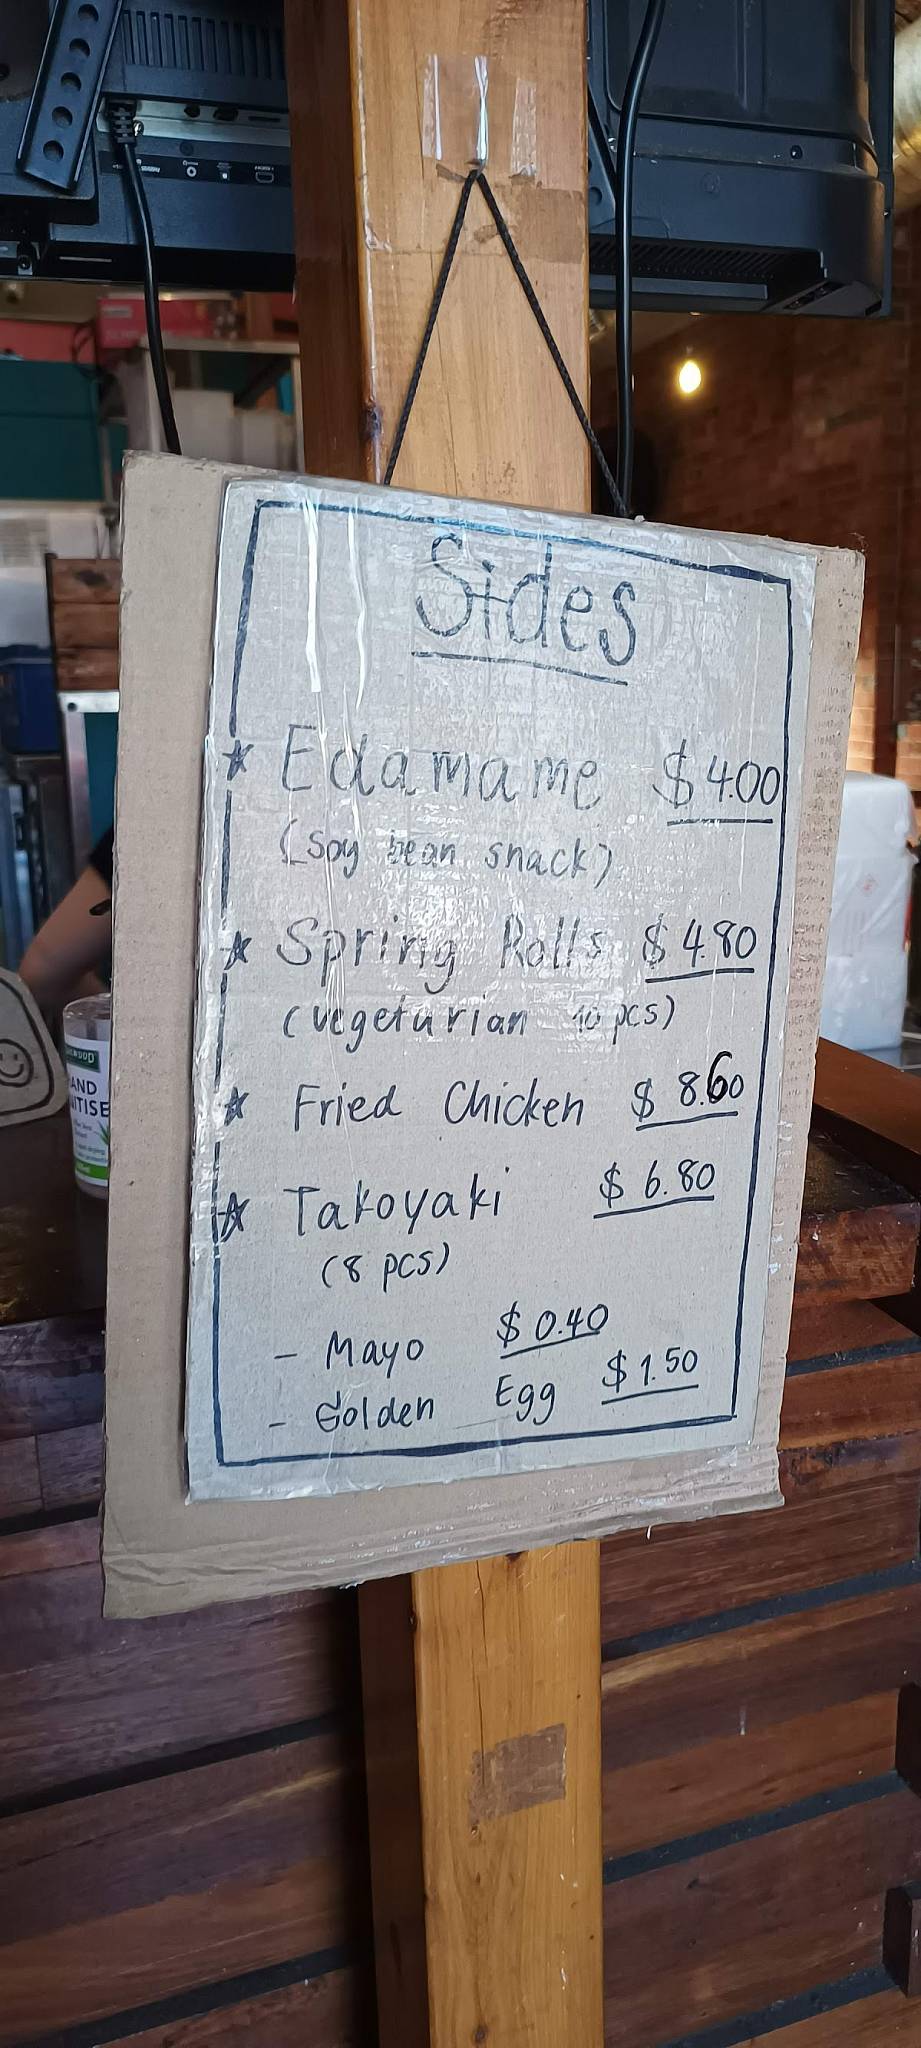 Sides
★ Edamame $4.00
(soy bean snack)
★ Spring Rolls $4.80
(vegetarian 10 pcs)
★ Fried Chicken $8.60
★ Takoyaki $6.80
(8 pcs)
- Mayo $0.40
- Golden Egg $1.50